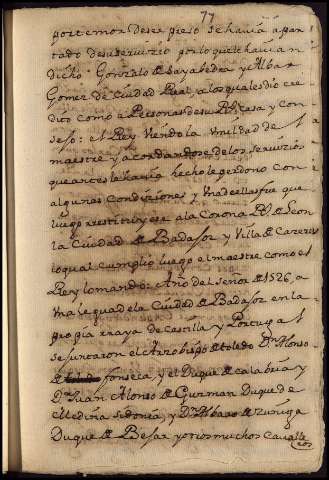 77
por temor de ser preso se havia apar
tado de su servizio por lo que le havian
dicho Gonzalo de Sayabedra y Albar
Gomez de Ciudad Real, a los quales dio cre
dito como a Personas de su Rl Casa y con
sejo: el Rey viendo la umildad de l
maestre y acordandose de los servizios
que antes le havia hecho le perdono con
algunas condiziones y una de ellas fue que
luego restituyese a la Corona Rl de Leon
la Ciudad de Badajoz y Villa de Cazeres
lo qual cumplio luego el maestre como el
Rey lo mando: Año del señor de 1526, a
una legua de la Ciudad de Badajoz en la
raya de Castilla y Portugal
se juntaron el Arzobispo de toledo Dn Alonso
de fonseca, y el Duque de Calabria y
Dn Juan Alonso de Guzman Duque de
Medina Sedonia, y Dn Albaro de Zuñiga
Duque de Bejar y otros muchos Cavalle
ros